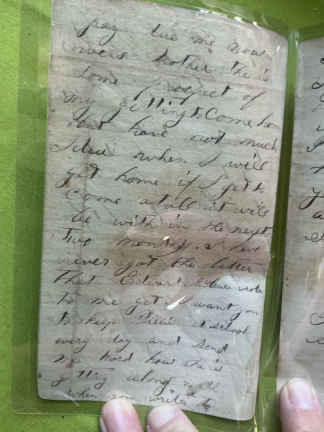 pay
there is
Some prospect of
my getting to Come home
but have not much
idea when I will
get home if I get to
Come atall it will
be with in the next
two months I have
never got the letter
that
to me yet I want you
to keep at school
every day and Send
me word how
getting along
when you write to